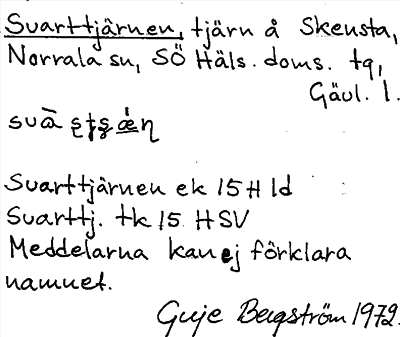 Svarttjärnen, tjärn å Skensta,
Norrala sn, SÖ Häls. doms. tg,
Gävl. l.
Svarttjärnen ek 15H 1d
Svarttj. tk 15 HSV
Meddelarna kan ej förklara
namnet.
Guje Bergström 1972.